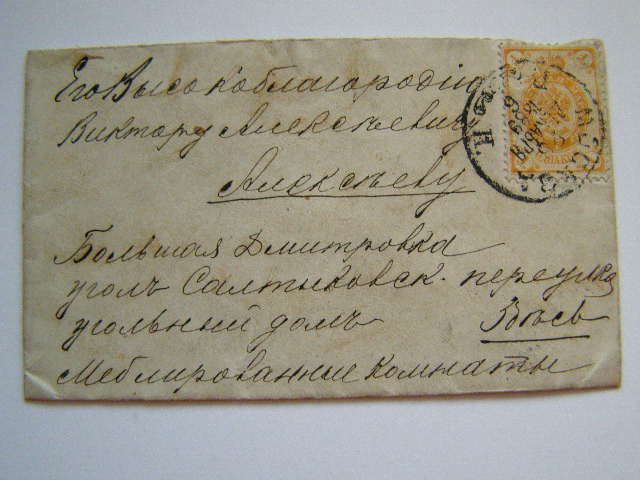 Его Высокоблагородію
Виктору Алексѣевичу
Алексѣеву
Большая Дмитровка
уголъ Салтыковск. переулка
угольный домъ Здѣсь
Меблированные комнаты